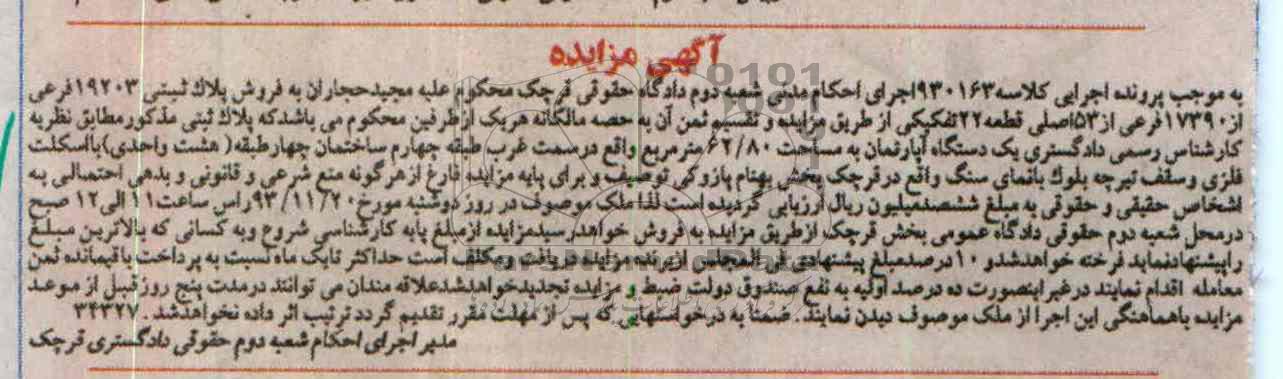 آگهی مزایده
به موجب پرونده اجرایی کلاسه۹۳۰۱۶۳اجرای احکام مدنی شعبه دوم دادگاه حقوقی قرچک محکوم علیه مجیدحجاران به فروش پلاک ثبتی ۱۹۲۰۳فرعی
از۱۷۳۹۰فرعی از۵۳اصلی قطعه۲۲تفکیکی از طریق مزایده و تقسیم ثمن آن به حصه مالکانه هریک ازطرفین محکوم می باشدکه پلاک ثبتی مذکورمطابق نظریه
کارشناس رسمی دادگستری یک دستگاه آپارتمان به مساحت ۶۲/۸۰مترمربع واقع درسمت غرب طبقه چهارم ساختمان چهارطبقه( هشت واحدی)بااسکلت
فلزی وسقف تیرچه بلوک بانمای سنگ واقع درقرچک بخش بهنام پازوکی توصیف و برای پایه مزایده فارغ ازهرگونه منع شرعی و قانونی و بدهی احتمالی به
اشخاص حقیقی و حقوقی به مبلغ ششصدمیلیون ریال ارزیابی گردیده است لذا ملک موصوف در روز دوشنبه مورخ۹۳/۱۱/۲۰راس ساعت۱۱الی۱۲ صبح
درمحل شعبه دوم حقوقی دادگاه عمومی بخش قرچک ازطریق مزایده به فروش خواهدرسیدمزایده ازمبلغ پایه کارشناسی شروع وبه کسانی که بالاترین مبلغ
راپیشنهادنمایدفرخته خواهدشدو ۱۰درصدمبلغ پیشنهادی فی المجلس ازبرنده مزایده دریافت ومکلف است حداکثر تایک ماه نسبت به پرداخت باقیمانده ثمن
معامله اقدام نمایند درغیراینصورت ده درصد اولیه به نفع صندوق دولت ضبط و مزایده تجدیدخواهدشدعلاقه مندان می توانند درمدت پنج روزقبل از موعد
مزایده باهماهنگی این اجرا از ملک موصوف دیدن نمایند. ضمنا به درخواستهایی که پس از مهلت مقرر تقدیم گردد ترتیب اثر داده نخواهدشد . ۳۴۳۲۷
مدیر اجرای احکام شعبه دوم حقوقی دادگستری قرچک